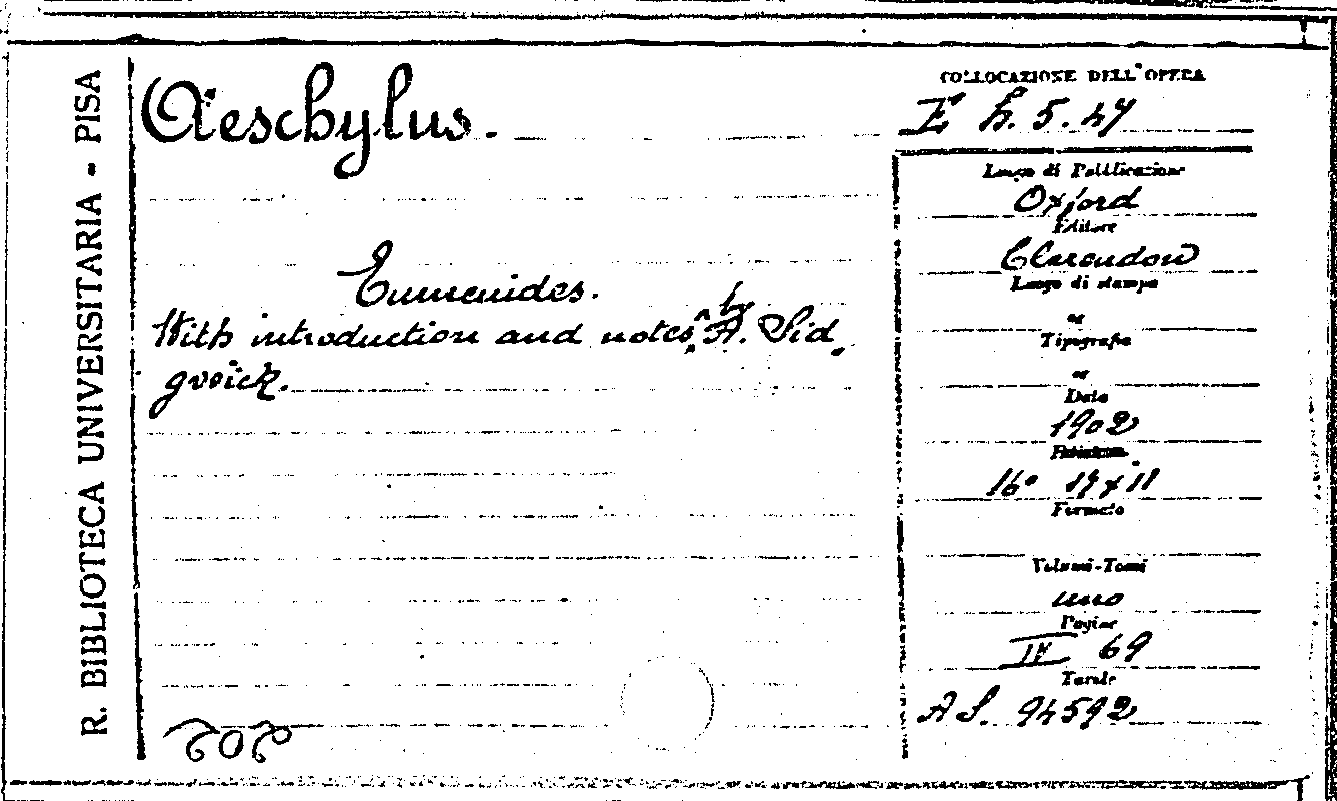 R. BIBLIOTECA UNIVERSITARIA - PISA
Aeschylus.
Eumenides.
With introduction and notes, by A. Sid„
gwick.
COLLOCAZIONE DELL'OPERA
h. 5. 47
Luogo di Pubblicazione
Oxford
Editore
Clarendon
Luogo di stampa
Tipografia
Data
1902
16° 17 x 11
Formato
Volumi-Tomi
uno
Pagine
IV 69
A S. 94592